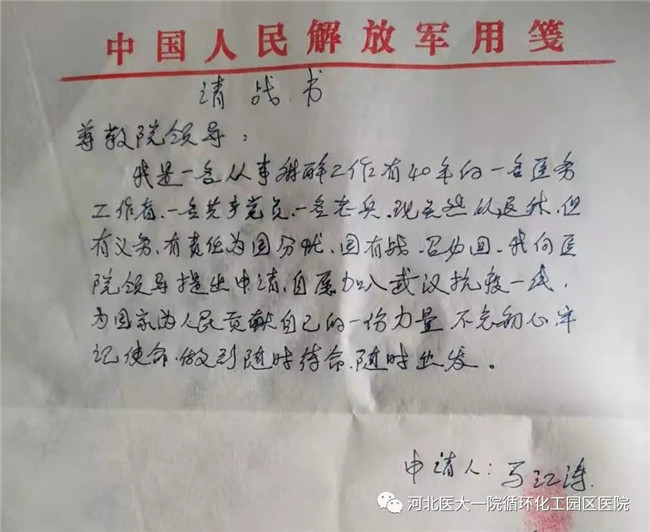 中国人民解放军用笺
请战书
尊敬院领导：
我是一名从事麻醉工作有40年的一名医务
工作者、一名共产党员、一名老兵、现虽然从退休，但
有义务、有责任为国分忧、国有战、召必回、我向医
院领导提出申请，自愿加入武汉抗疫一线，
为国家为人民贡献自己的一份力量 不忘初心 牢
记使命，做到随时待命、随时出发。
申请人：马江涛
河北医大一院循环化工园区医院